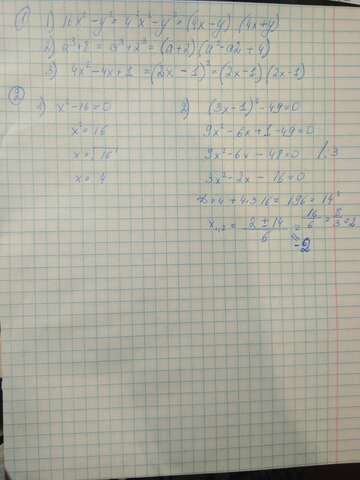 ① 1) 16x² - y² = 4²x² - y² = (4x - y) (4x + y)
2) a³ + 8 = a³ + 2³ = (a + 2) (a² - a2 + 4)
3) 4x² - 4x + 1 = (2x - 1)² = (2x - 1) (2x - 1)
②
1) x² - 16 = 0
x² = 16
x = 4
2) (3x - 1)² - 49 = 0
9x² - 6x + 1 - 49 = 0
9x² - 6x - 48 = 0 /:3
3x² - 2x - 16 = 0
D = 4 + 4·3·16 = 196 = 14²
x₁,₂ = 2 ± 14 / 6 = 16/6 = 8/3
= -2